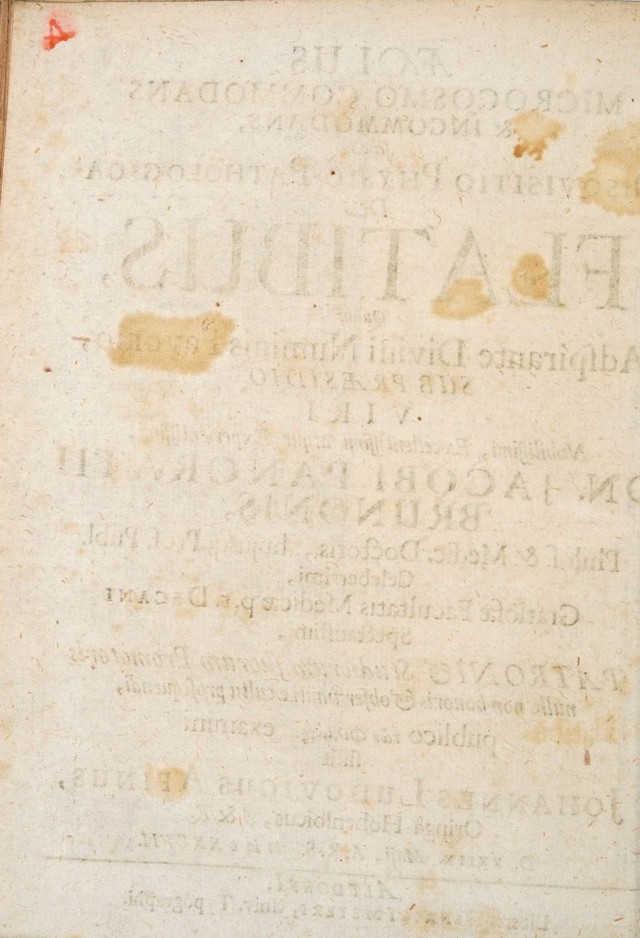 4
ÆOLUS
MICROCOSMO COMMODANS
& INCOMMODANS,
DISQVISITIO PHYSICO-PATHOLOGICA
De
FLATIBUS,
Adspirante Divini Numinis Favonio,
SUB PRÆSIDIO
VIRI
Nobilissimi, Excellentissimi atque Experientissimi,
JACOBI PANCRATII
BRUNONIS,
Philos. & Medic. Doctoris, Prof. Publ.
Celeberrimi,
Gratiosæ Facultatis Medicæ p. t. DECANI
Spectabilis,
PATRONI & Studiorum suorum Promotoris
nullo non honoris & observantiæ cultu prosequendi,
publico examini
sistit
JOHANNES LUDOVICUS APINUS,
Oringâ-Hohenloicus,
ALTDORFI,
Univ. Typographi.